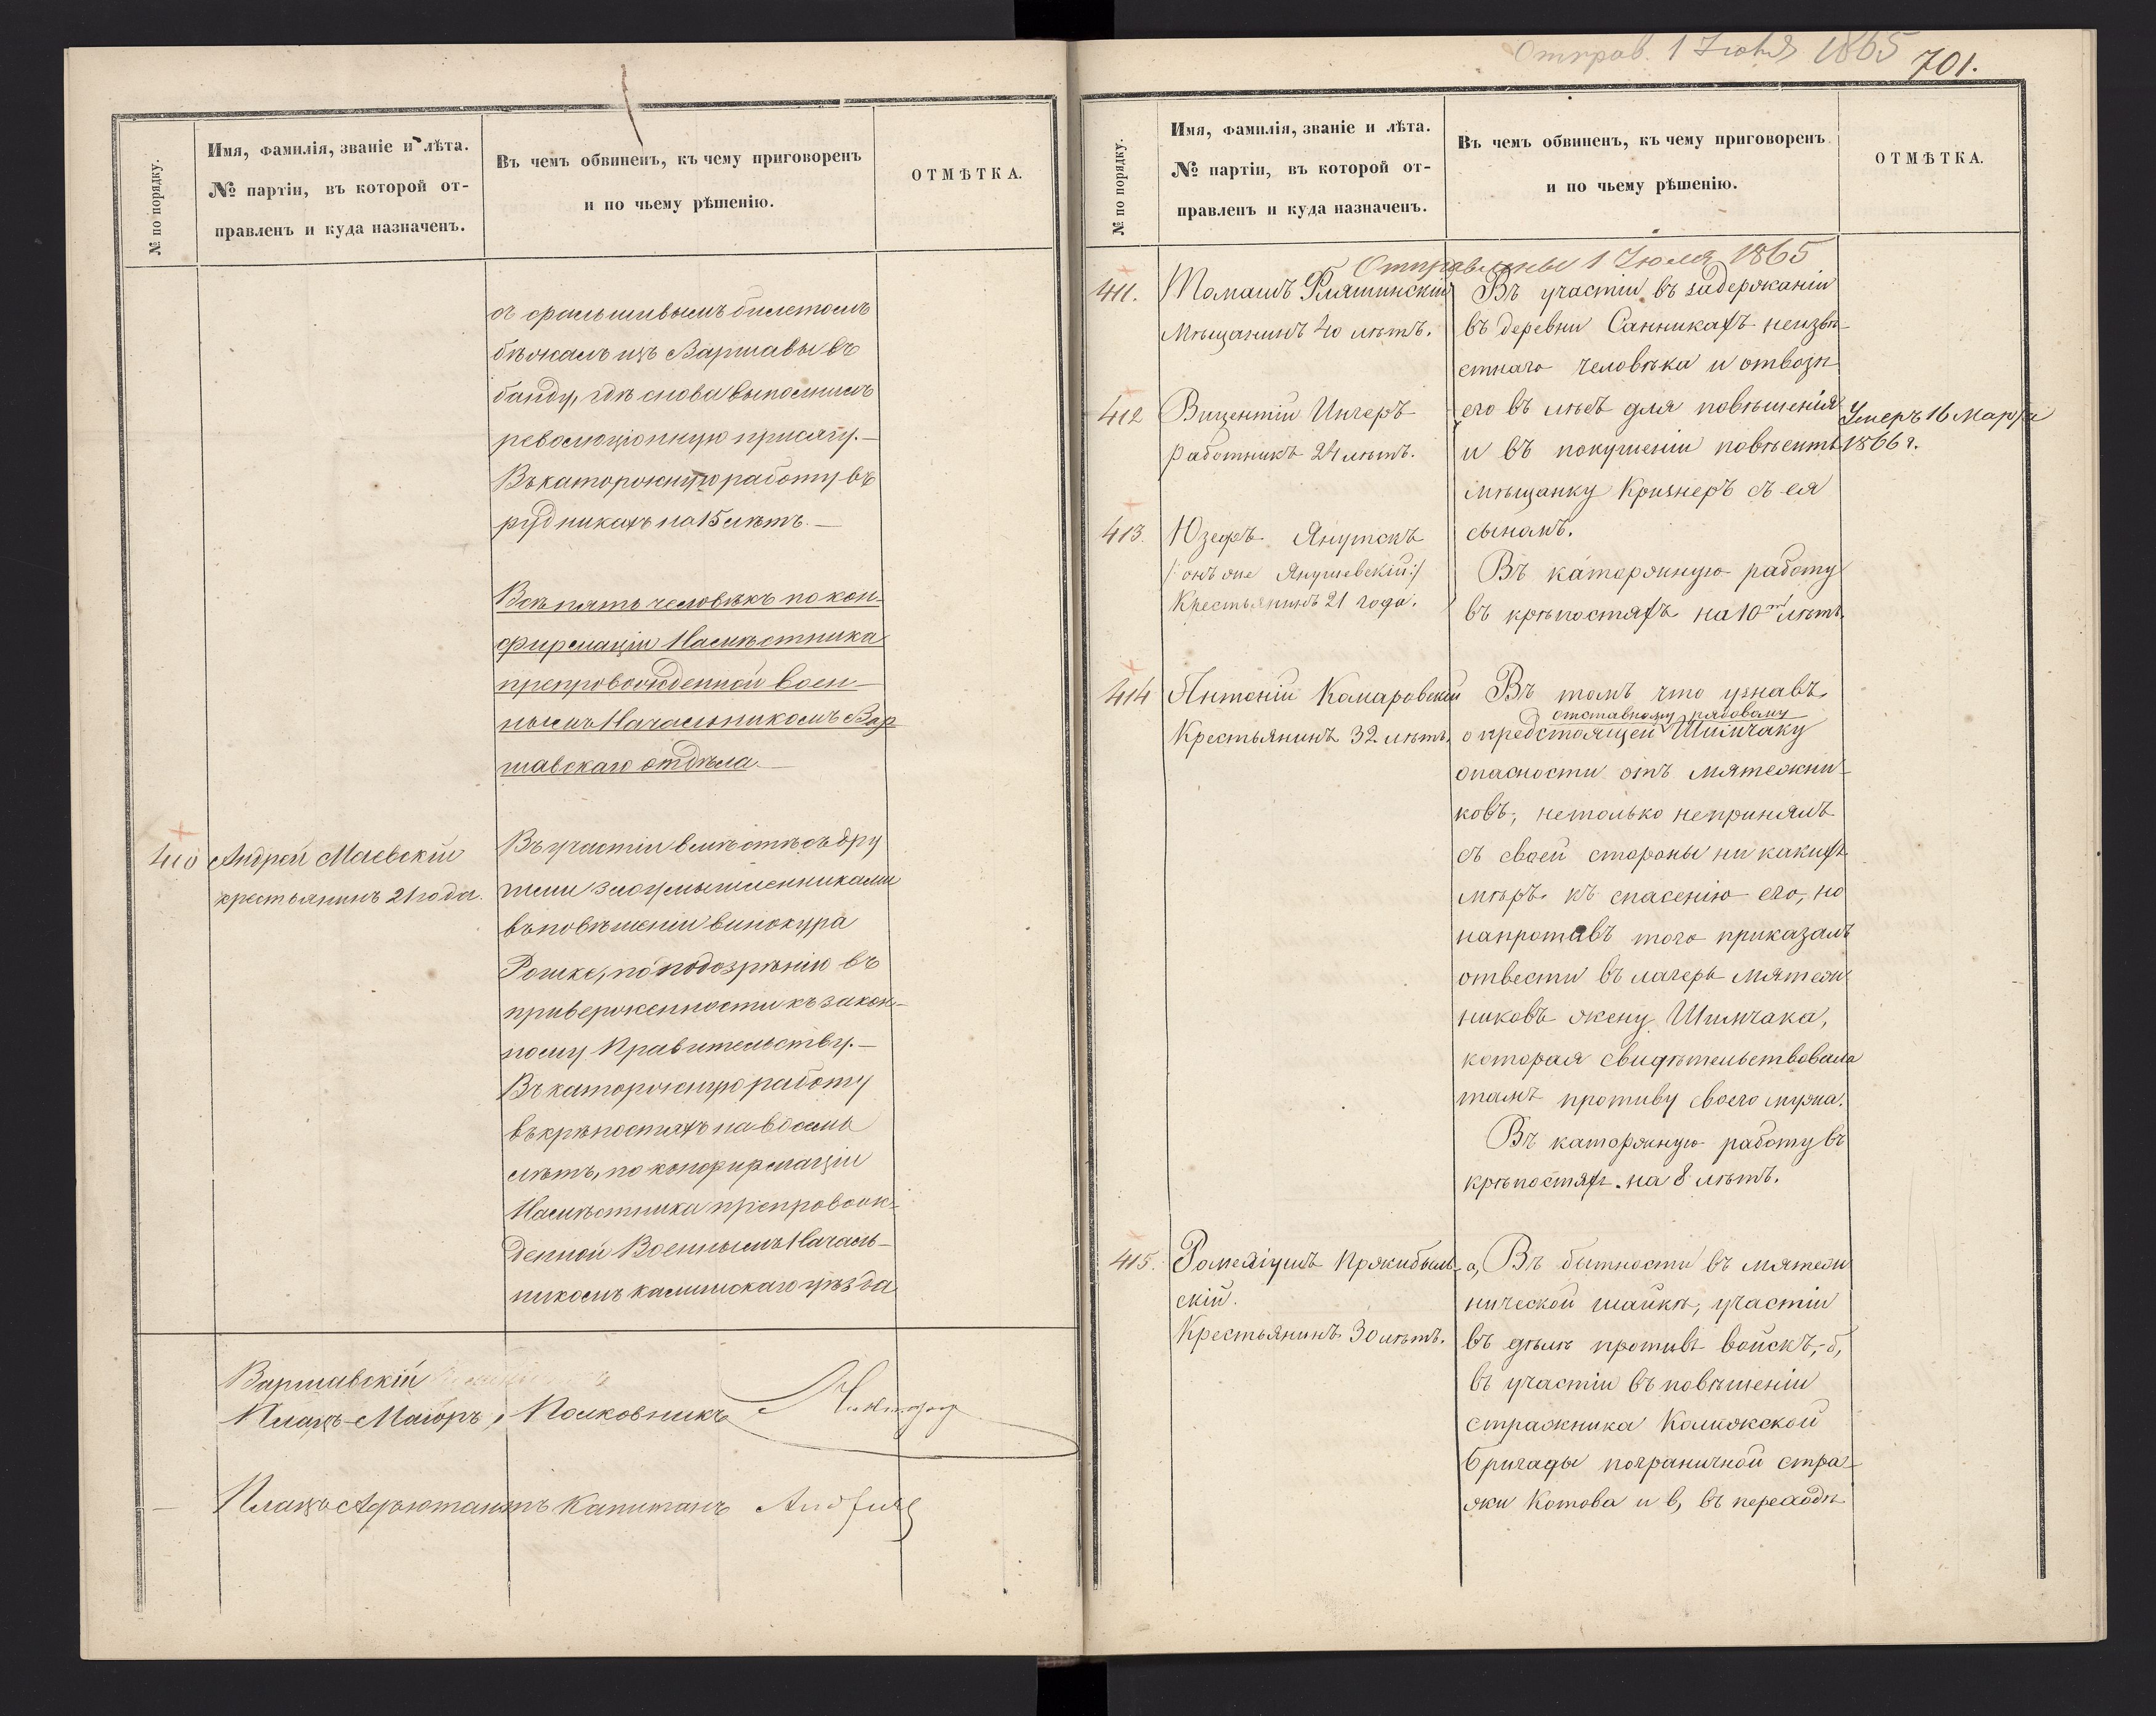 № по порядку.
Имя, фамилія, званіе и лѣта.
№ партіи, въ которой от-
правленъ и куда назначенъ.
Въ чемъ обвиненъ, къ чему приговоренъ
и по чьему рѣшенію.
ОТМѢТКА.
съ фальшивымъ билетомъ
бѣжалъ изъ Варшавы въ
банду, гдѣ снова выполнилъ
революціонную присягу.—
Въ каторжную работу въ
рудникахъ на 15 лѣтъ.—
Всѣ пять человѣкъ по кон-
фирмаціи Намѣстника
препровожденной воен-
нымъ Начальникомъ Вар
шавскаго отдѣла.—
410 Андрей Маевскій
крестьянинъ 21 года.
Въ участіи вмѣстѣ съ дру
гими злоумышленниками
въ повѣшеніи винокура
Рошке, по подозрѣнію въ
приверженности къ закон-
ному Правительству.—
Въ каторжную работу
въ крѣпостяхъ на восемь
лѣтъ, по конфирмаціи
Намѣстника препровож-
денной Военнымъ Началь-
никомъ калишскаго уѣзда
Варшавскій
Плацъ-Маіоръ, Полковникъ
Плацъ Адъютантъ Капитанъ
Отправ. 1 Іюля 1865
701.
№ по порядку.
Имя, фамилія, званіе и лѣта.
№ партіи, въ которой от-
правленъ и куда назначенъ.
Въ чемъ обвиненъ, къ чему приговоренъ
и по чьему рѣшенію.
ОТМѢТКА.
Отправлены 1 Іюля 1865
411. Томашъ
Мѣщанинъ 40 лѣтъ.
412 Вицентій Ингеръ
работникъ 24 лѣтъ.
413. Юзефъ Янутокъ
/:онъ же Янушевскій:/
Крестьянинъ 21 года.
Въ участіи въ задержаніи
въ деревни Санникахъ неизвѣ-
стнаго человѣка и отвозѣ
его въ лѣсъ для повѣшенія
и въ покушеніи повѣсить
мѣщанку Кризнеръ съ ея
сыномъ.
Въ каторжную работу
въ крѣпостяхъ на 10ть лѣтъ.
Умеръ 16 Марта
1866 г.
414 Антоній Комаровскій
Крестьянинъ 32 лѣтъ.
Въ томъ что узнавъ
отставному рядовому
о предстоящей Шимчаку
опасности отъ мятежни-
ковъ, нетолько непринялъ
съ своей стороны ни какихъ
мѣръ къ спасенію его, но
напротивъ того приказалъ
отвести въ лагерь мятеж
никовъ жену Шимчака,
которая свидѣтельствовала
тамъ противу своего мужа.
Въ каторжную работу въ
крѣпостяхъ на 8 лѣтъ.
415. Ромеліушъ Пржибыль-
скій.
Крестьянинъ 30 лѣтъ.
а, Въ бытности въ мятеж
нической шайкѣ, участіи
въ дѣлѣ противъ войскъ,- б,
въ участіи въ повѣшеніи
стражника Калижской
бригады пограничной стра-
жи Котова и в, въ переходѣ